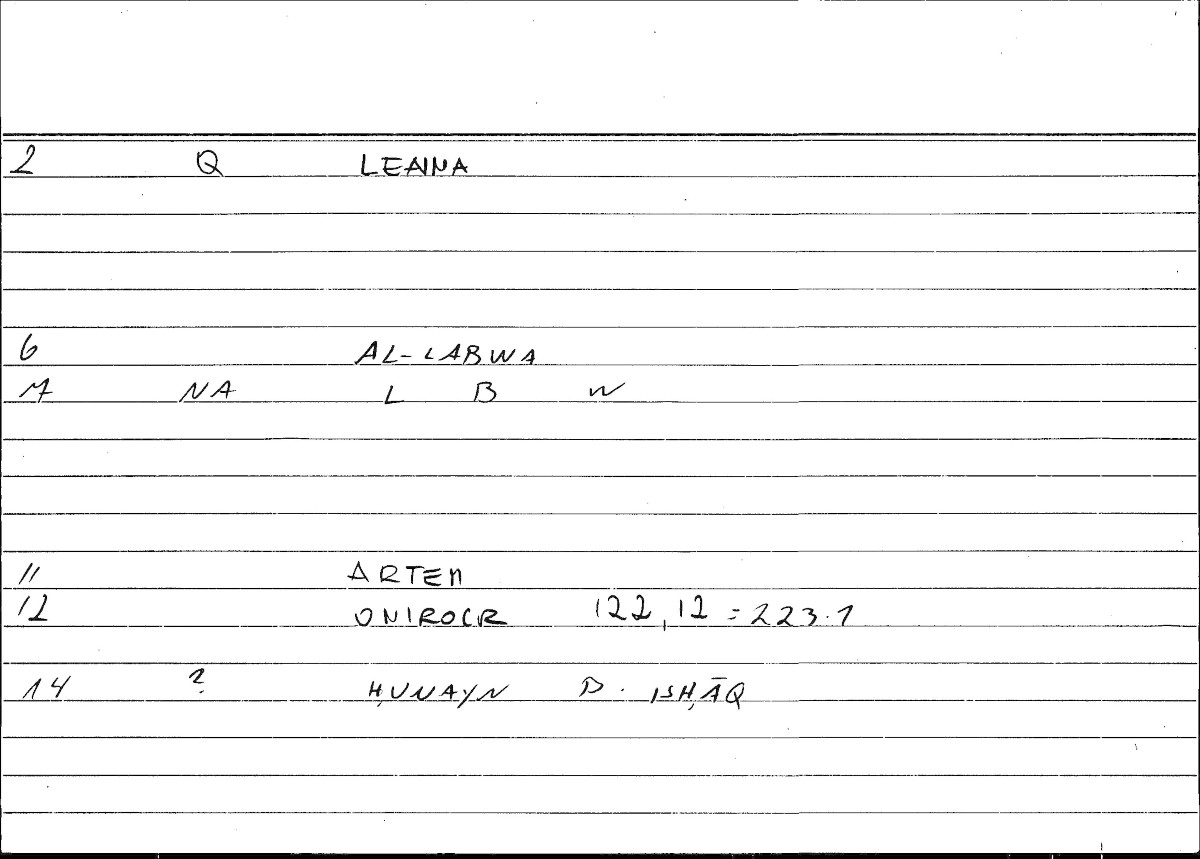 2 Q LEAINA
6 AL-LABWA
7 NA L B W
11 ARTEM
12 ONIROCR 122,12 = 223.1
14 ? ḤUNAYN B. ISḤĀQ